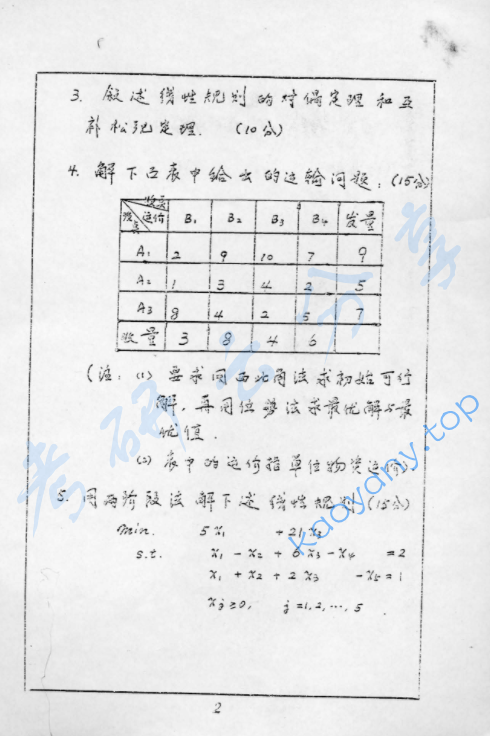 3. 叙述线性规划的对偶定理和互
补松弛定理. (10分)
4. 解下已表中给出的运输问题:(15分)
收点
发点 运价 B₁ B₂ B₃ B₄ 发量
A₁ 2 9 10 7 9
A₂ 1 3 4 2 5
A₃ 8 4 2 5 7
收量 3 8 4 6
(注: (1) 要求用西北角法求初始可行
解, 再用位势法求最优解与最
优值.
(2) 表中的运价指单位物资运价)
5. 用两阶段法解下述线性规划(15分)
min. 5x₁ +21x₃
s.t. x₁ - x₂ + 6x₃ - x₄ =2
x₁ + x₂ + 2x₃ -x₅=1
xⱼ≥0, j=1,2,…,5.
2
考研云分享
kaoyany.top